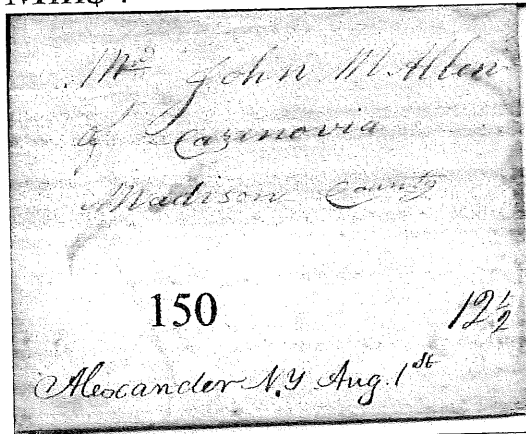 Mr John M. Allen
of Cazenovia
Madison County
150
12½
Alexander N.Y Aug. 1st